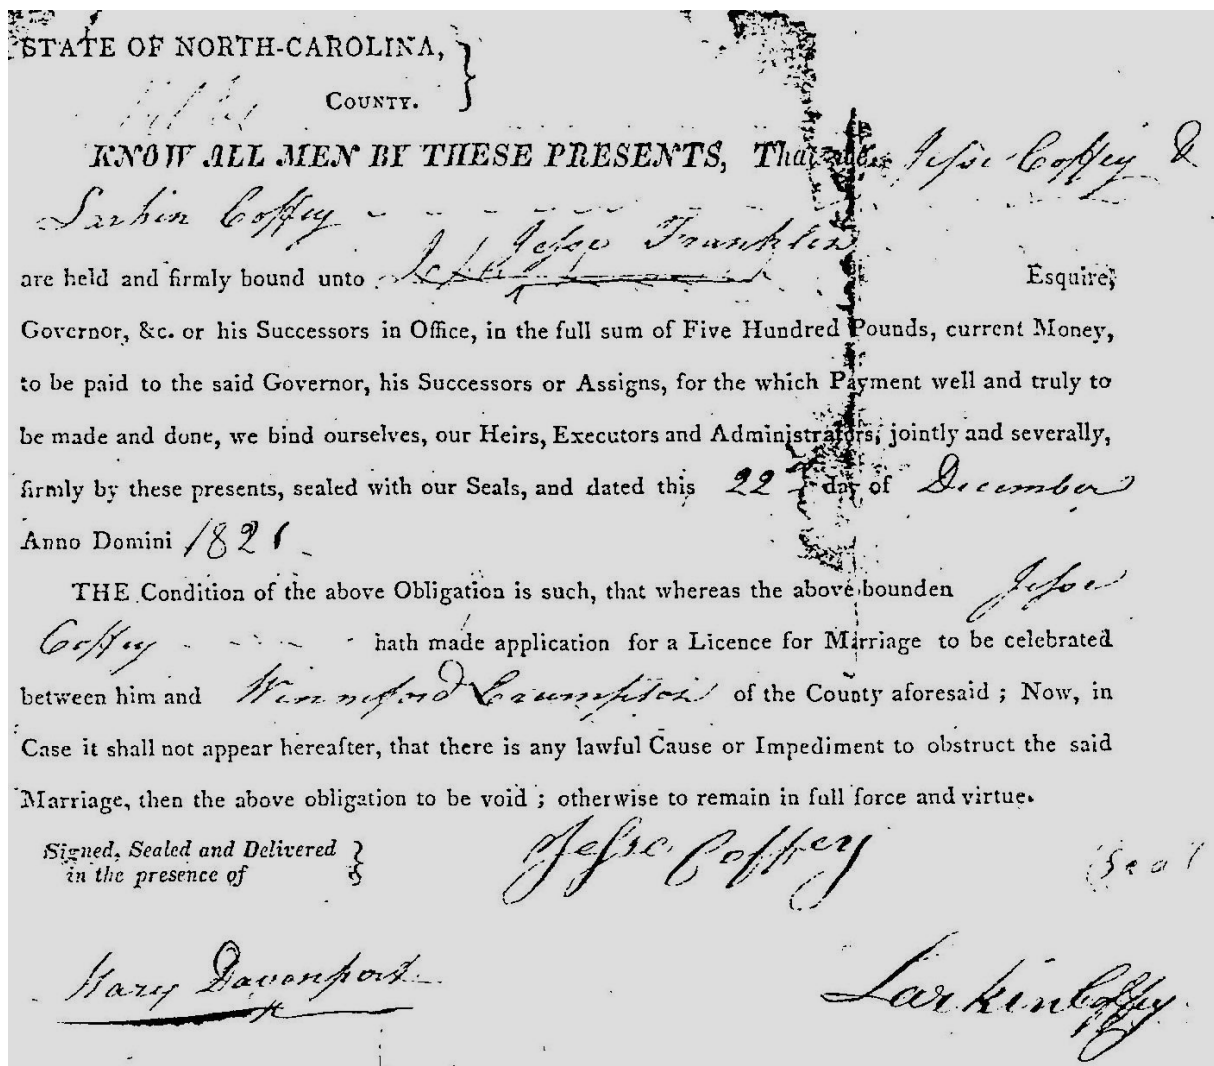 STATE OF NORTH-CAROLINA,
COUNTY.
KNOW ALL MEN BY THESE PRESENTS, That we Jesse Coffey &
Larkin Coffey
Jesse Franklin
are held and firmly bound unto Esquire,
Governor, &c. or his Successors in Office, in the full sum of Five Hundred Pounds, current Money,
to be paid to the said Governor, his Successors or Assigns, for the which Payment well and truly to
be made and done, we bind ourselves, our Heirs, Executors and Administrators, jointly and severally,
firmly by these presents, sealed with our Seals, and dated this 22d day of December
Anno Domini 1821
THE Condition of the above Obligation is such, that whereas the above bounden Jesse
Coffey hath made application for a Licence for Marriage to be celebrated
between him and Winneford Crumpton of the County aforesaid ; Now, in
Case it shall not appear hereafter, that there is any lawful Cause or Impediment to obstruct the said
Marriage, then the above obligation to be void ; otherwise to remain in full force and virtue.
Signed, Sealed and Delivered
in the presence of
Jesse Coffey (Seal
Mary Davenport
Larkin Coffey